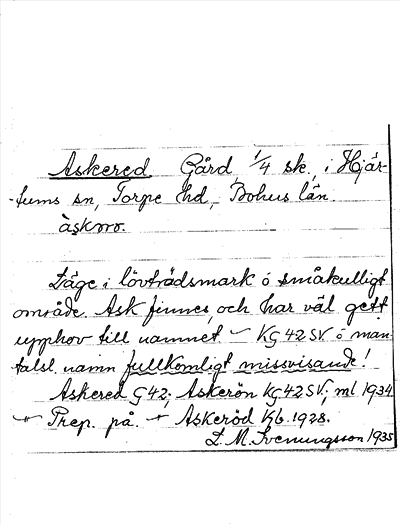 Askered Gård, 1/4 sk., i Hjär-
-tums sn, Torpe hd, Bohus län.
àskrœ.
Läge i lövträdsmark o småkulligt
område. Ask finnes, och har väl gett
upphov till namnet – KG 42 SV o man-
talsl. namn fullkomligt missvisande!
Askered G 42; Askerön KG 42 SV; ml 1934
Prep. på. Askeröd Kb. 1928.
L. M. Svenungsson 1935